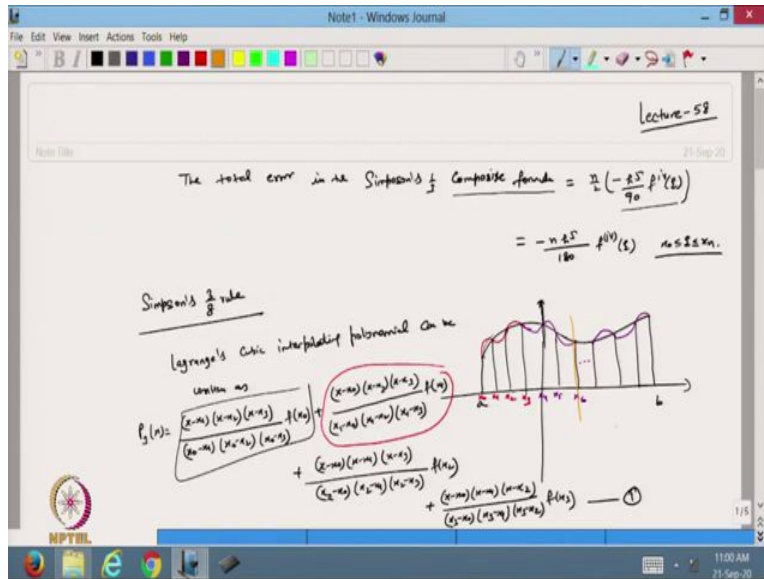 Note1 - Windows Journal
File Edit View Insert Actions Tools Help
Lecture-58
Note Title
21-Sep-20
The total error in the Simpson's 1/3 Composite formula = n/2 (-h^5/90 f^iv(ξ))
= -nh^5/180 f^(iv)(ξ) x0≤ξ≤xn.
Simpson's 3/8 rule
Lagrange's Cubic interpolating polynomial can be
written as
P3(x)= (x-x1)(x-x2)(x-x3)/(x0-x1)(x0-x2)(x0-x3) f(x0) + (x-x0)(x-x2)(x-x3)/(x1-x0)(x1-x2)(x1-x3) f(x1)
+ (x-x0)(x-x1)(x-x3)/(x2-x0)(x2-x1)(x2-x3) f(x2)
+ (x-x0)(x-x1)(x-x2)/(x3-x0)(x3-x1)(x3-x2) f(x3) — ①
a x0 x1 x2 x3 x4 x5 x6 ... b
NPTEL
1/5
11:00 AM
21-Sep-20